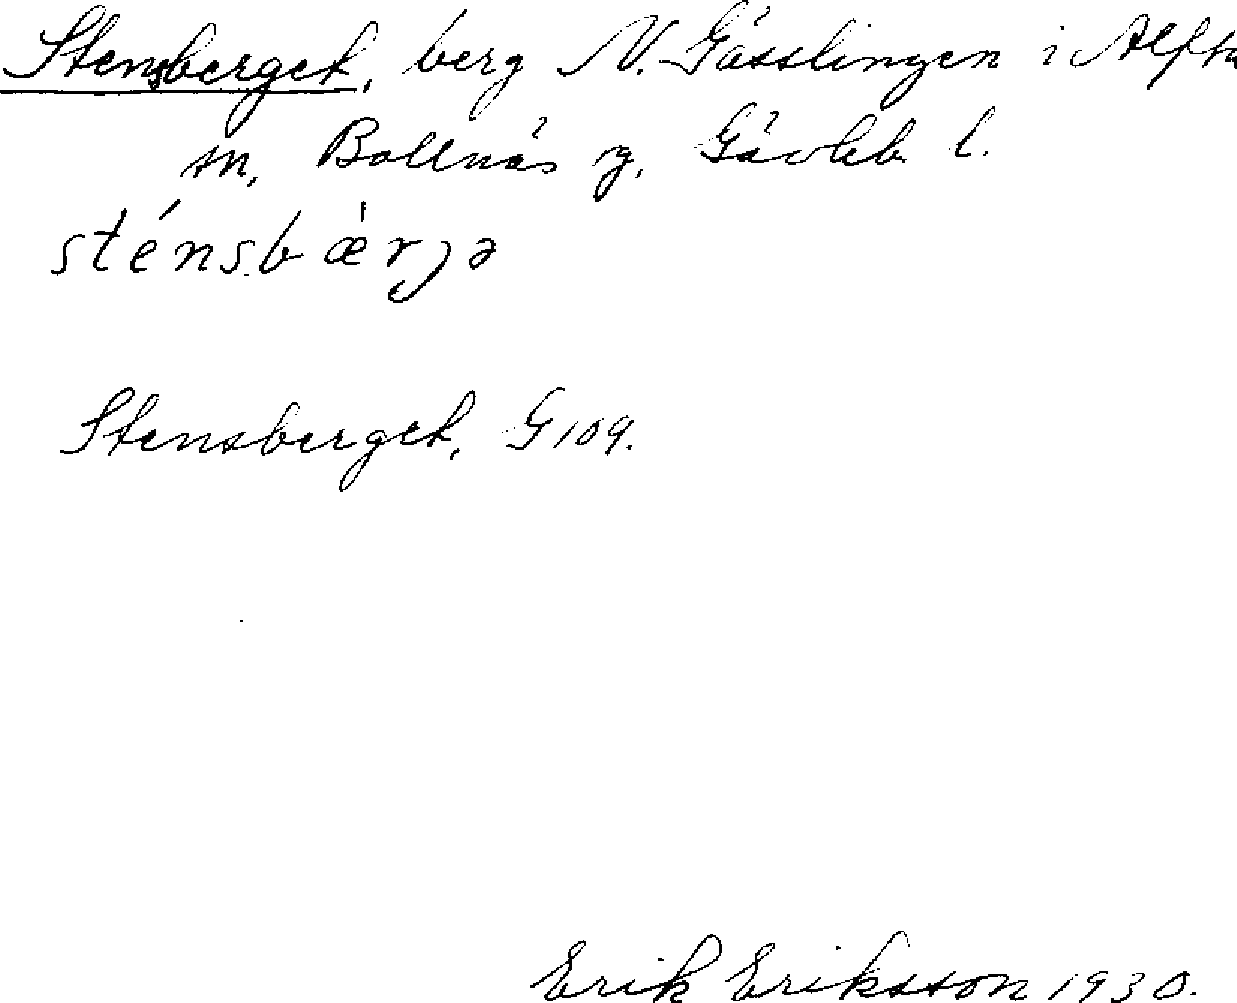 Stensberget, berg N. Gässlingen i Alfta
sn, Bollnäs rg, Gävleb. l.
sténsbæ̀rjə
Stensberget, G 109.
Erik Eriksson 1930.